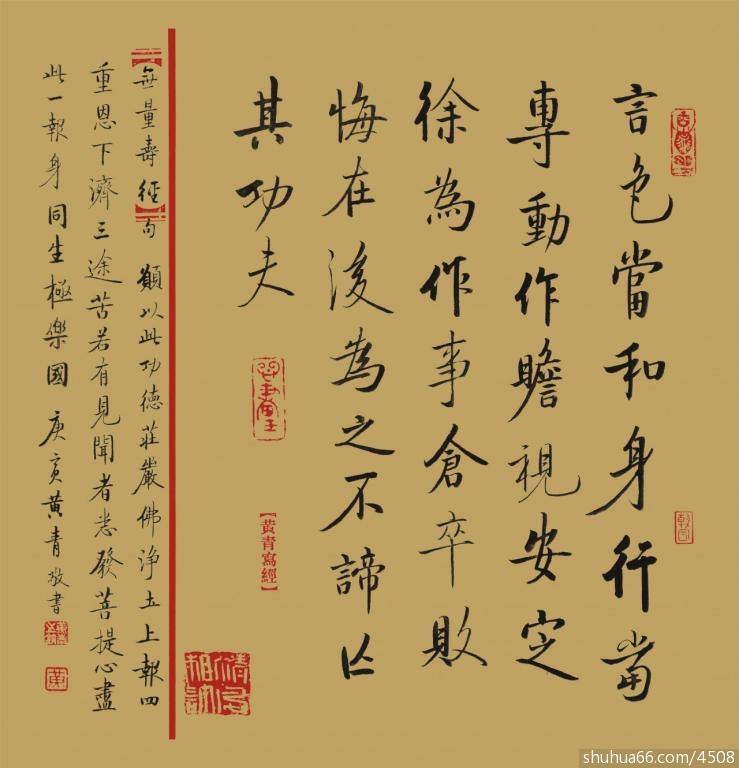 言色當和身行當
專動作瞻視安定
徐為作事倉卒敗
悔在後為之不諦亡
其功夫
【黄青寫經】
【無量壽經】句 願以此功德莊嚴佛淨土上報四
重恩下濟三途苦若有見聞者悉發菩提心盡
此一報身同生極樂國 庚寅黄青敬書
shuhua66.com/4508